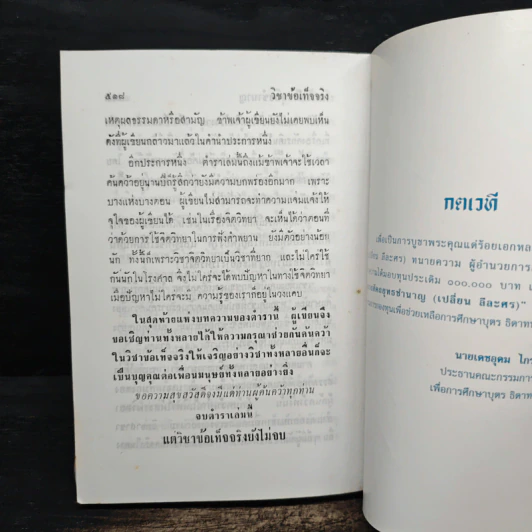 ๕๑๘ วิชาข้อเท็จจริง
เหตุผลธรรมดาหรือสามัญ ข้าพเจ้าผู้เขียนยังไม่เคยพบเห็น
ดังที่ผู้เขียนกล่าวมาแล้วในคำนำประการหนึ่ง
อีกประการหนึ่ง ตำราเล่มนี้ถึงแม้ข้าพเจ้าจะใช้เวลา
ค้นคว้าอยู่นานปีก็รู้สึกว่ายังมีความบกพร่องอีกมาก เพราะ
บางแห่งบางตอน ผู้เขียนไม่สามารถจะทำความแจ่มแจ้งให้
จุใจของผู้เขียนได้ เช่นในเรื่องจิตวิทยา จะเห็นได้ว่าตอนที่
ว่าด้วยการใช้จิตวิทยาในการฟังคำพยาน ยังมีตัวอย่างน้อย
นัก ทั้งนี้ก็เพราะวิชาจิตวิทยาเป็นวิชาที่ยาก และไม่ใคร่ใช้
กันนักในโรงศาล จึงไม่ใคร่จะได้พบปัญหาในทางใช้จิตวิทยา
เมื่อปัญหาไม่ใคร่จะมี ความรู้ของเราก็อยู่ในวงแคบ
ในสุดท้ายแห่งบทความของตำรานี้ ผู้เขียนจึง
ขอเชิญท่านทั้งหลายได้ให้ความกรุณาช่วยกันค้นคว้า
ในวิชาข้อเท็จจริงให้เจริญอย่างวิชาทั้งหลายอื่นก็จะ
เป็นบุญคุณต่อเพื่อนมนุษย์ทั้งหลายอย่างยิ่ง
ขอความสุขสวัสดีจงมีแด่ท่านผู้ค้นคว้าทุกท่าน
จบตำราเล่มนี้
แต่วิชาข้อเท็จจริงยังไม่จบ
กตเวที
เพื่อเป็นการบูชาพระคุณแด่ร้อยเอกหล
ลีละศร) ทนายความ ผู้อำนวยการ
ได้มอบทุนประเดิม ๑๐๐,๐๐๐ บาท
ยุทธชำนาญ (เปลี่ยน ลีละศร)"
กองทุนเพื่อช่วยเหลือการศึกษาบุตร ธิดาท
นายเดชอุดม ไกร
ประธานคณะกรรมกา
เพื่อการศึกษาบุตร ธิดาท